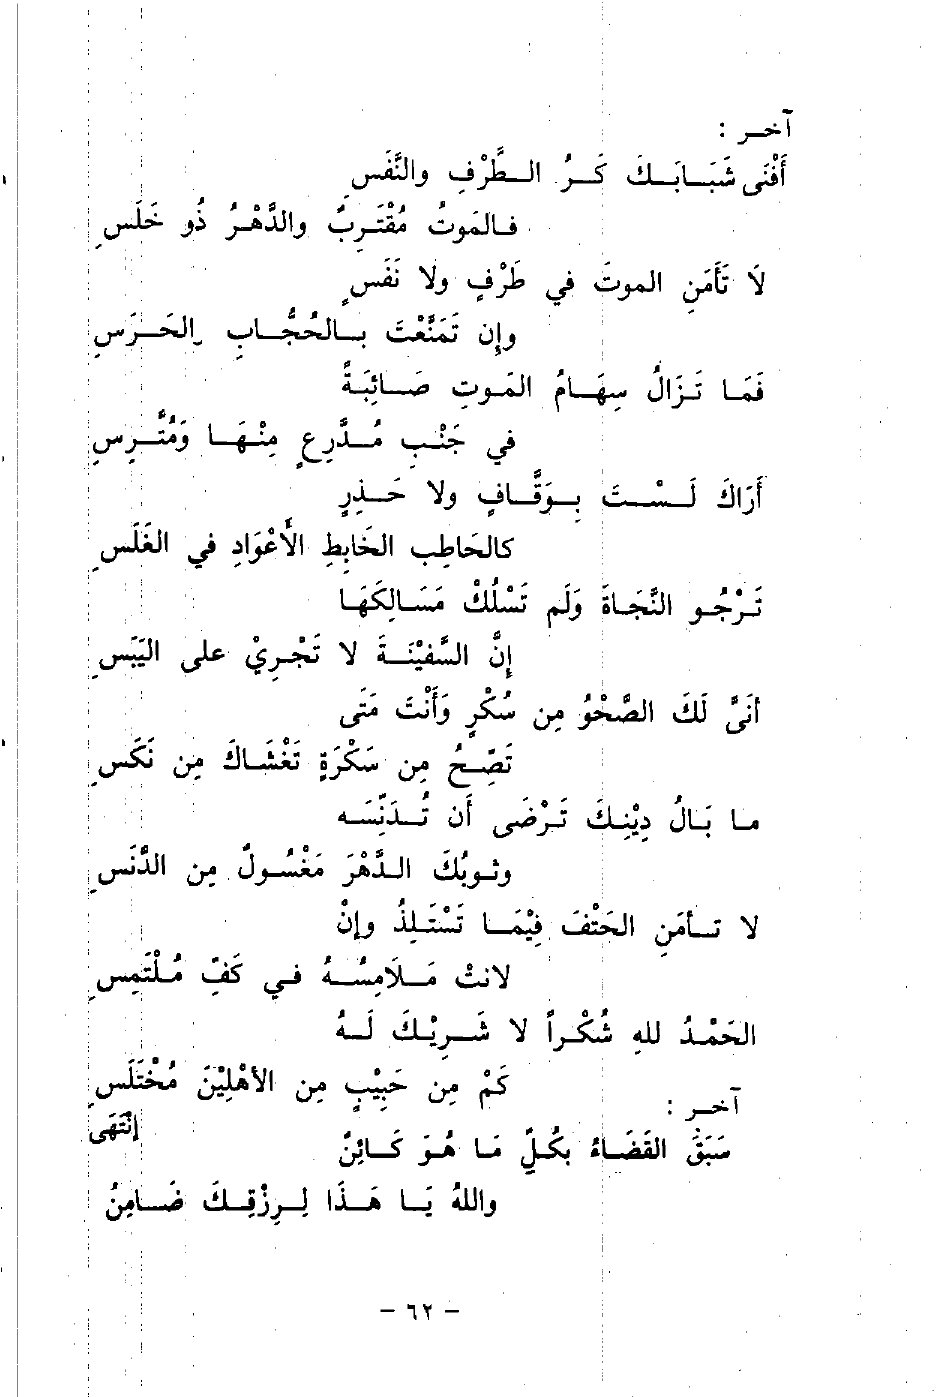 آخــر :
أَفْنَى شَبَــابَــكَ كَــرُّ الــطَّرْفِ والنَّفَسِ
فــالمَوتُ مُقْتَــرِبٌ والدَّهْــرُ ذُو خَلَسِ
لاَ تَأمَنِ الموتَ في طَرْفٍ ولا نَفَسٍ
وإِن تَمَنَّعْتَ بــالحُجَّــابِ الحَــرَسِ
فَمَــا تَــزَالُ سِهَــامُ المَــوتِ صَــائِبَــةً
في جَنْــبِ مُــدَّرِعٍ مِنْــهَــا وَمُتَّــرِسِ
أَرَاكَ لَــسْــتَ بِــوَقَّــافٍ ولا حَــذِرٍ
كالحَاطِبِ الخَابِطِ الأَعْوَادِ في الغَلَسِ
تَــرْجُــو النَّجَــاةَ وَلَم تَسْلُكْ مَسَــالِكَهَــا
إنَّ السَّفِيْنَــةَ لا تَجْــرِيْ على اليَبَسِ
أنَىَّ لَكَ الصَّحْوُ مِن سُكْرٍ وَأَنْتَ مَتَى
تَصِــحُّ مِن سَكْرَةٍ تَغْشَــاكَ مِن نَكَسِ
مــا بَــالُ دِيْنِــكَ تَــرْضَى أَن تُــدَنِّسَــه
وثــوبُكَ الــدَّهْرَ مَغْسُــولٌ مِن الدَّنَسِ
لا تــأمَنِ الحَتْفَ فِيْمَــا تَسْتَــلِذُ وإنْ
لانتْ مَــلَامِسُــهُ فــي كَفِّ مُلْتَمِسِ
الحَمْــدُ للهِ شُكْــراً لا شَــرِيْــكَ لَــهُ
كَمْ مِن حَبِيْبٍ مِن الأهْلِيْنَ مُخْتَلَسِ
إنْتَهَى
آخــر :
سَبَقَ القَضَــاءُ بكُــلِّ مَا هُــوَ كَــائِنٌ
واللهُ يَــا هَــذَا لِــرِزْقِــكَ ضَــامِنُ
– ٦٢ –